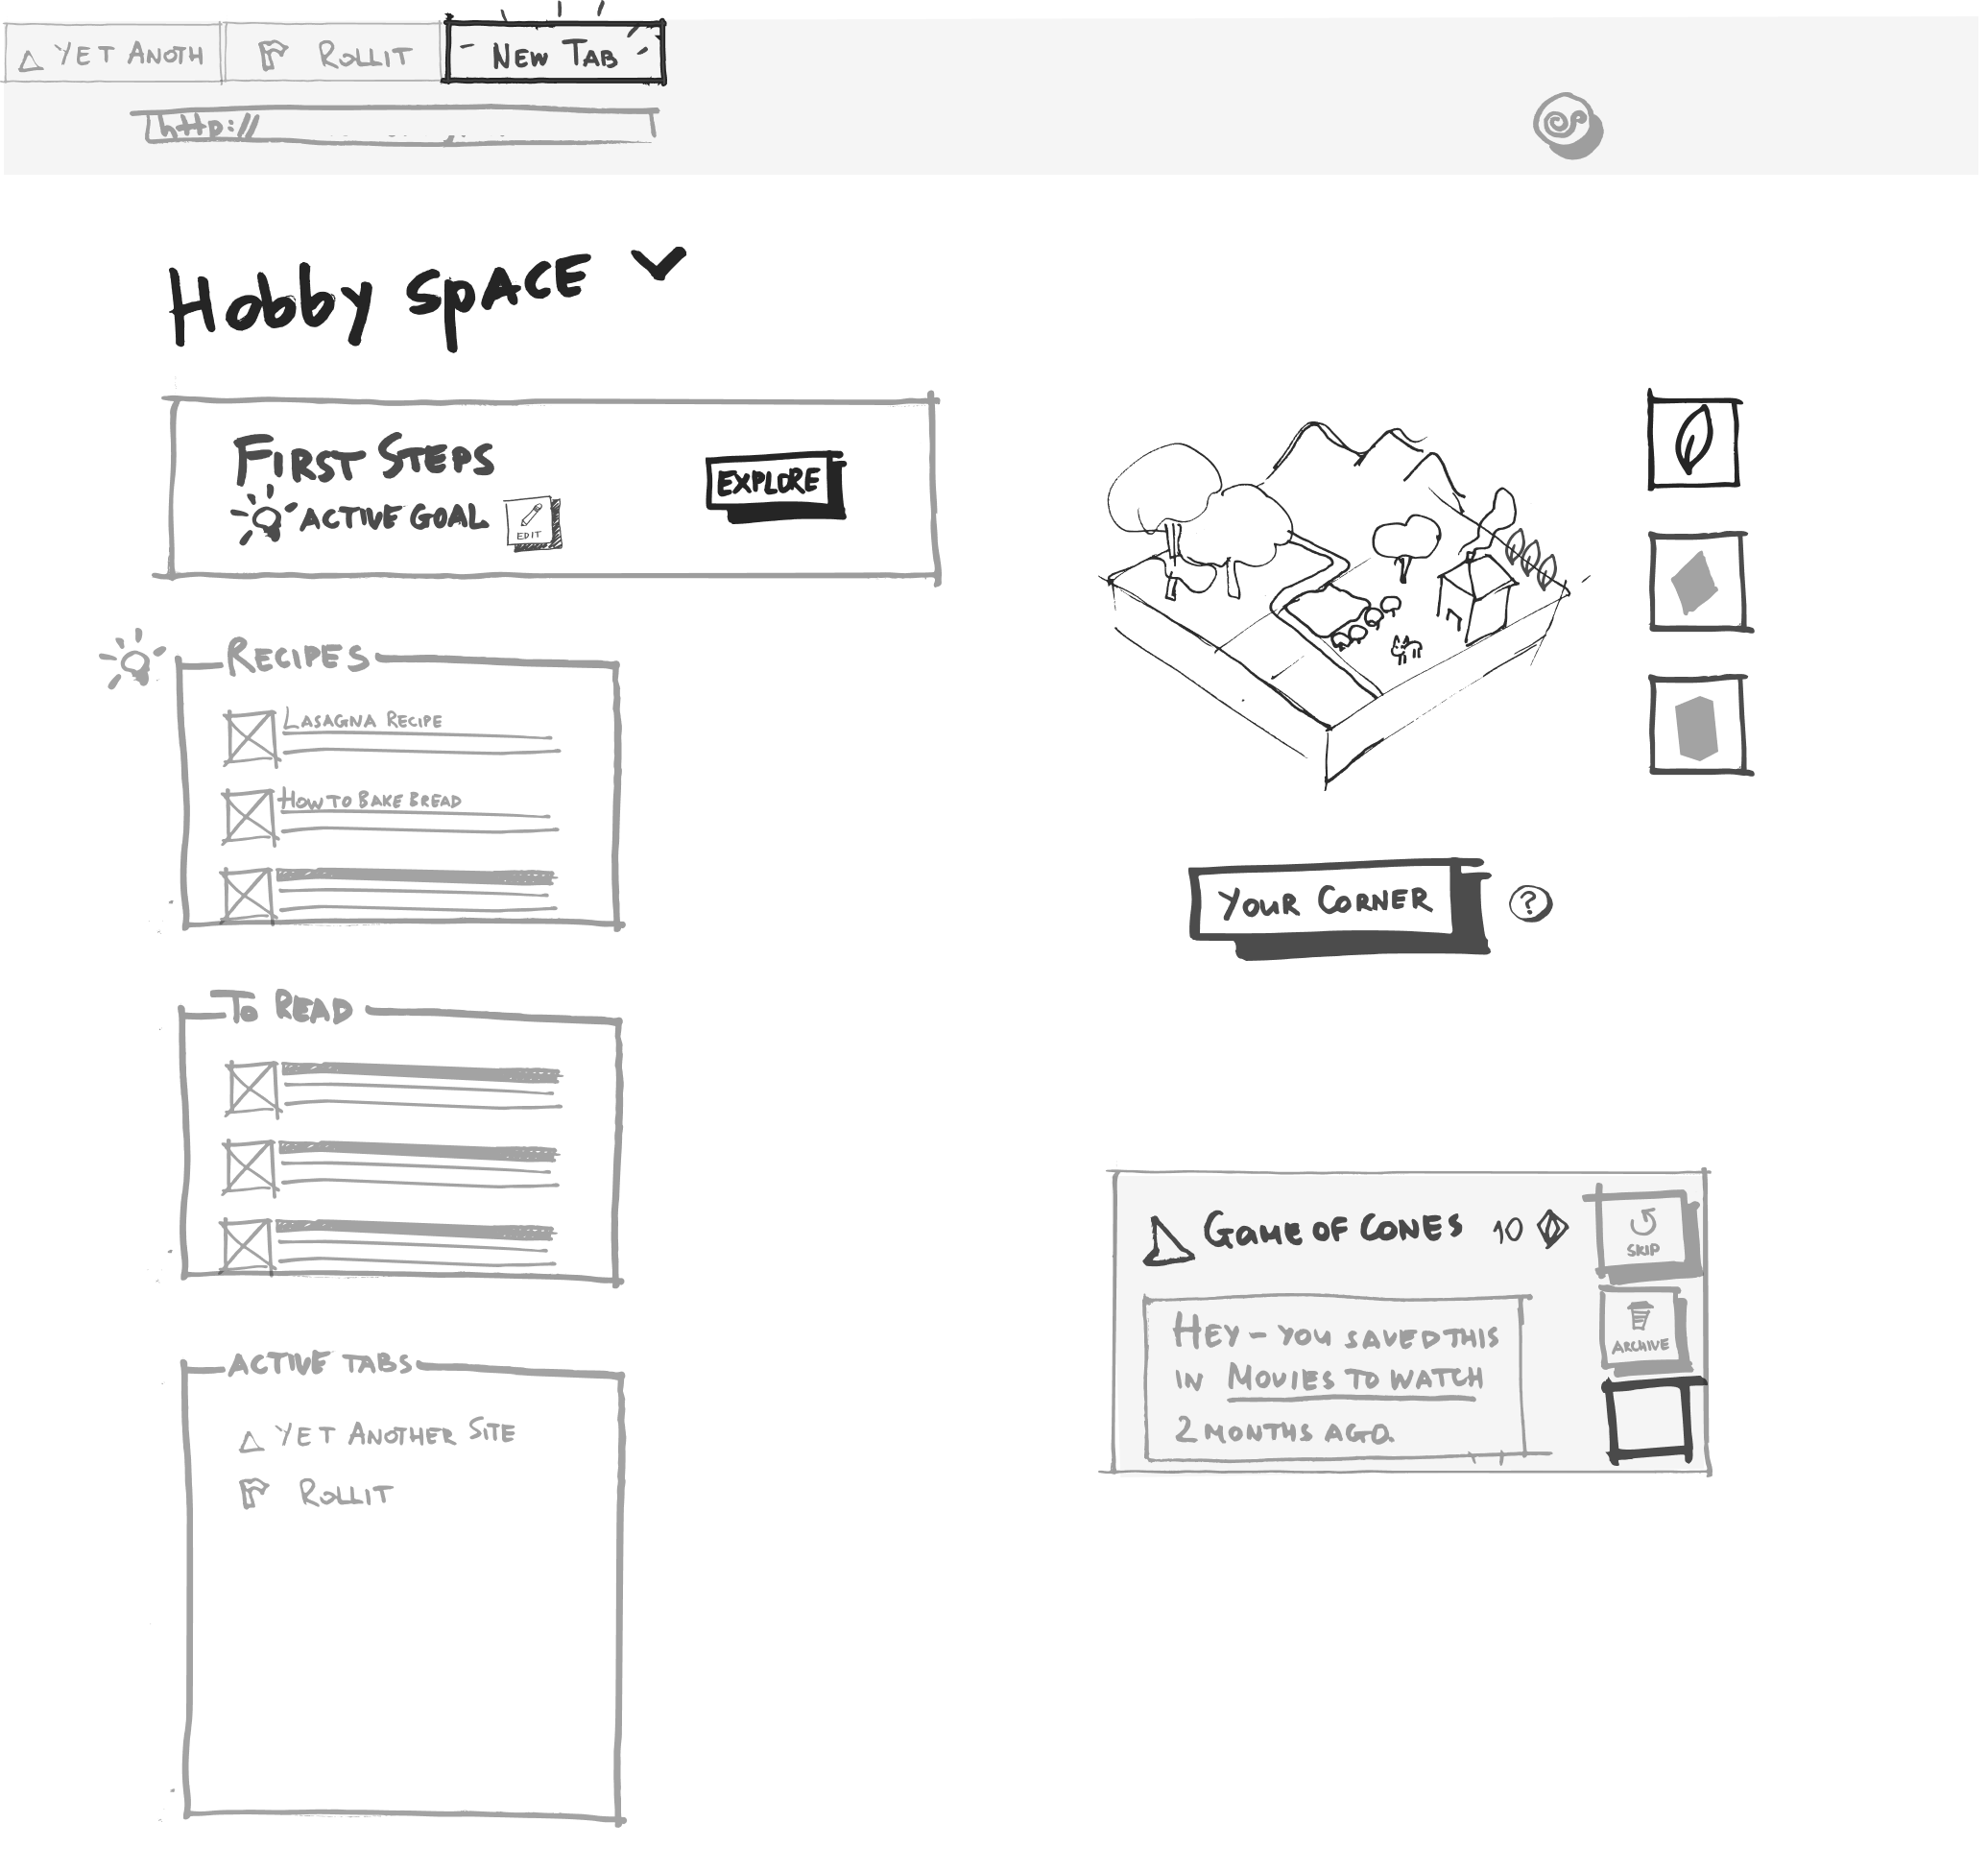 YET ANOTH
ROLLIT
NEW TAB
http://
Hobby SPACE
FIRST STEPS
ACTIVE GOAL
EDIT
EXPLORE
RECIPES
LASAGNA RECIPE
HOW TO BAKE BREAD
TO READ
ACTIVE TABS
YET ANOTHER SITE
ROLLIT
YOUR CORNER
?
GAME OF CONES 10
SKIP
ARCHIVE
HEY - YOU SAVED THIS
IN MOVIES TO WATCH
2 MONTHS AGO.